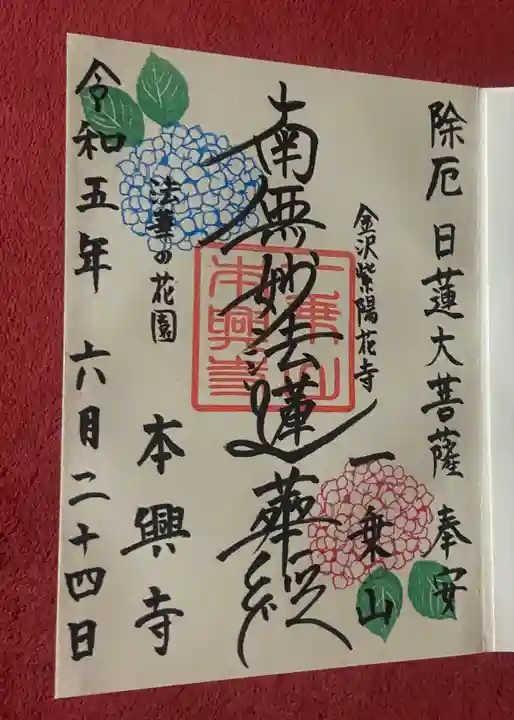 除厄 日蓮大菩薩 奉安
金沢紫陽花寺
一乗山
南無妙法蓮華経
法華の花園
本興寺
令和五年 六月二十四日